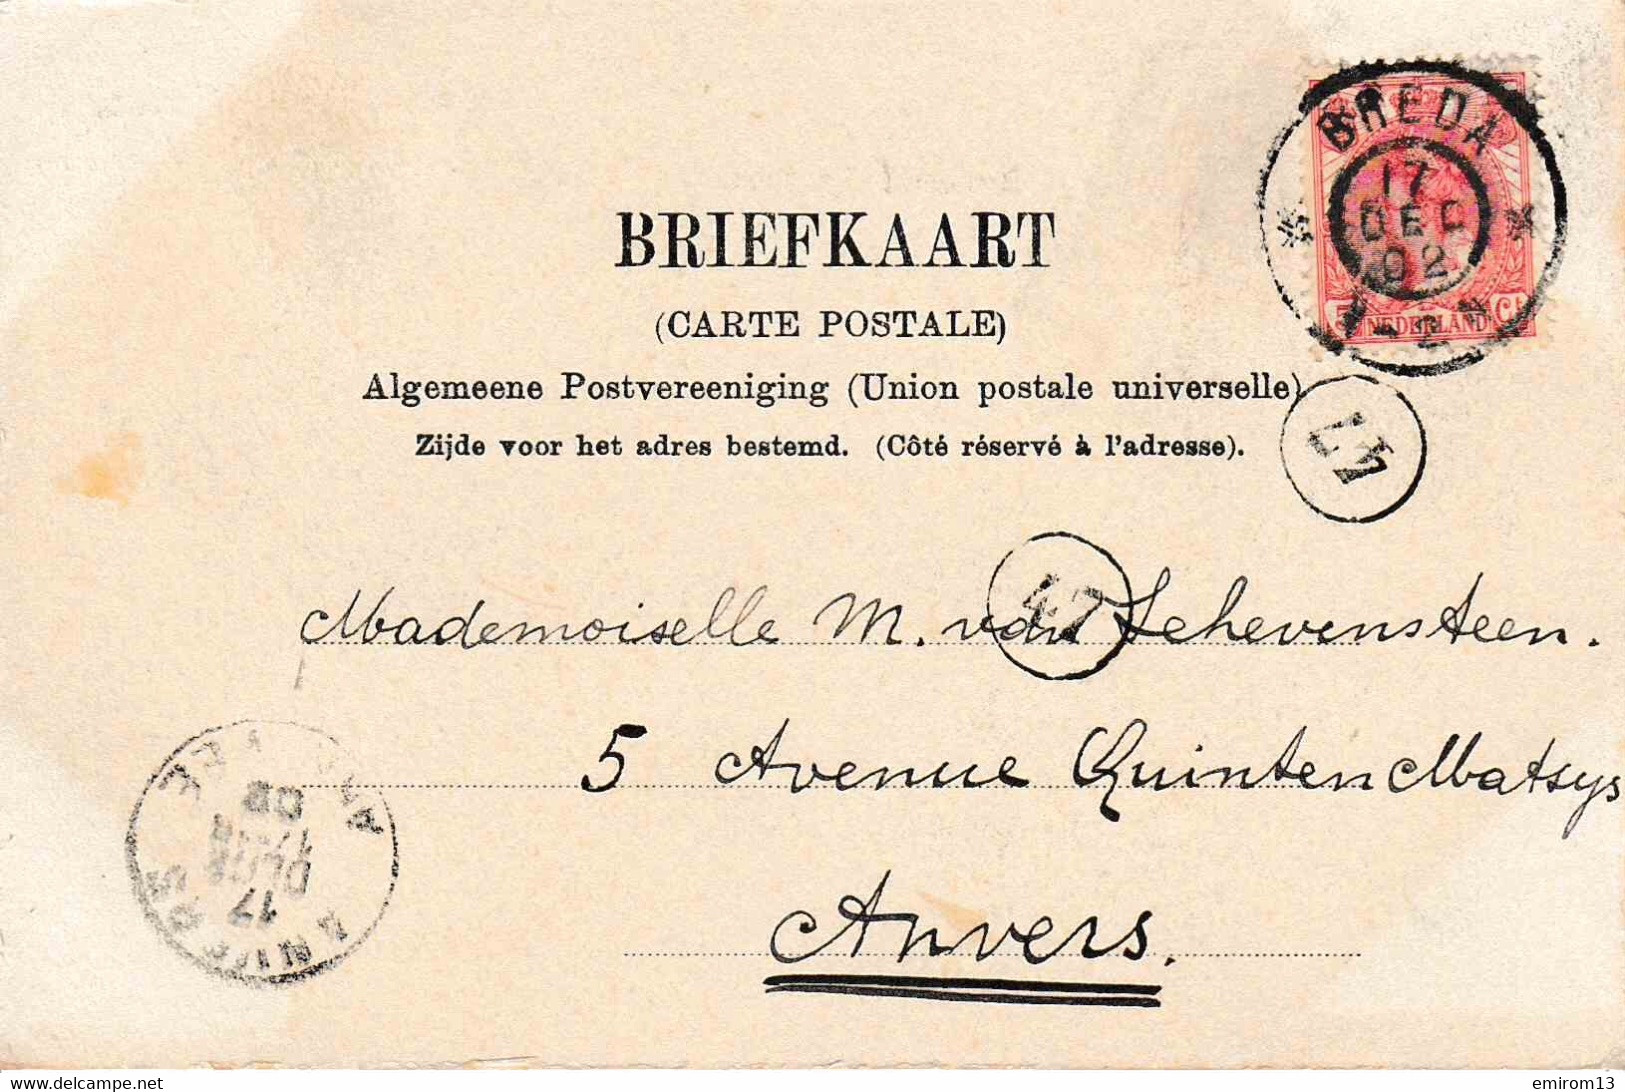 BREDA
17
DEC
02
NEDERLAND
BRIEFKAART
(CARTE POSTALE)
Algemeene Postvereeniging (Union postale universelle)
Zijde voor het adres bestemd. (Côté réservé à l'adresse).
47
47
Mademoiselle M. van Lehevensteen.
5 Avenue Quinten Matsys
Anvers.
17
delcampe.net
emirom13